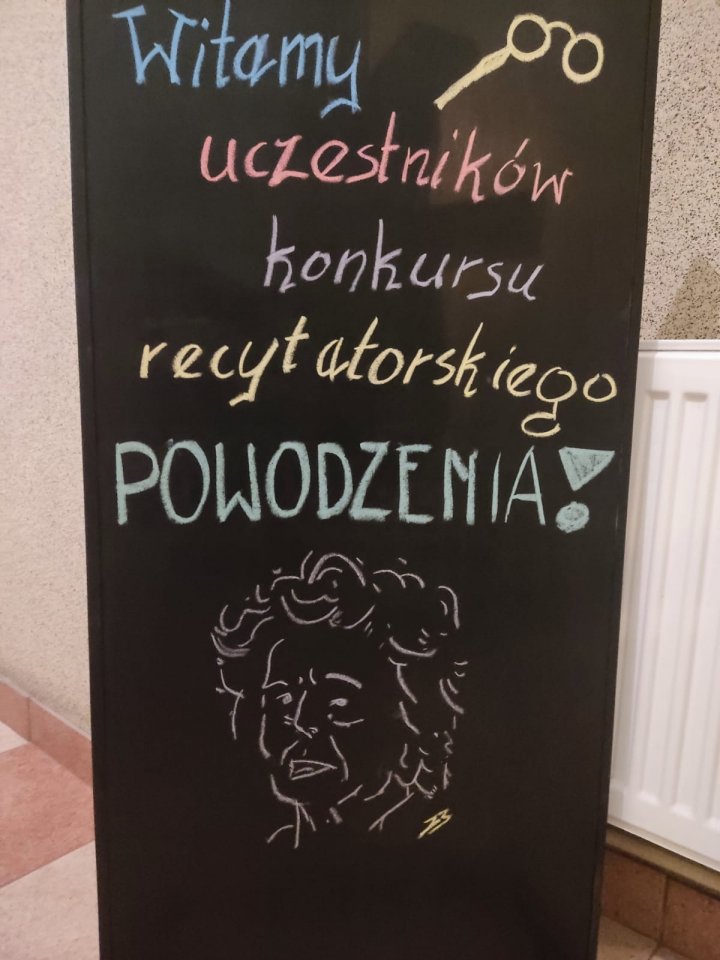 Witamy
uczestników
konkursu
recytatorskiego
POWODZENIA!